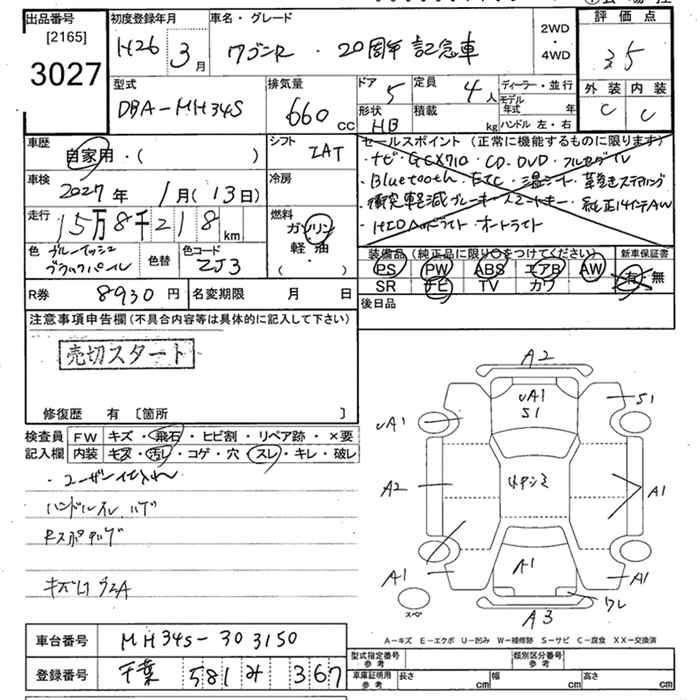 出品番号 初度登録年月 車名・グレード 2WD・4WD 評価点
[2165] H26年 3月 ワゴンR・20周年記念車 3.5
3027
型式 排気量 ドア 5 定員 4人 ディーラー・並行 外装 内装
DBA-MH34S 660cc 形状 HB 積載 kg モデル年式 年 C C
ハンドル 左・右
車歴 自家用・( ) シフト IAT セールスポイント(正常に機能するものに限ります)
・ナビ・GCX710・CD・DVD・フルセグTV
車検 2027年 1月(13日) 冷房
・Bluetooth・ETC・温シート・革巻きステアリング
・衝突軽減ブレーキ・スマートキー・純正14インチAW
・HIDヘッドライト・オートライト
走行 15万8千218km 燃料 ガソリン・軽油・( )
色 ブルーイッシュブラックパール 色替 色コード ZJ3
装備品(純正品に限り○をつけてください) 新車保証書
PS PW ABS エアB AW 有・無
SR ナビ TV カワ
R券 8930円 名変期限 月 日 後日品
注意事項申告欄(不具合内容等は具体的に記入して下さい)
売切スタート
修復歴 有〔箇所 〕
検査員記入欄 FW キズ・飛石・ヒビ割・リペア跡・×要
内装 キズ・汚レ・コゲ・穴・スレ・キレ・破レ
・ユーザー仕入れ
ハンドルスレ ハゲ
キズ凹 有A
A2
UA1
S1
S1
UA1
A2
A1
A1
A1
A1
ワレ
スペ
A3
A-キズ E-エクボ U-凹み W-補修跡 S-サビ C-腐食 XX-交換済
車台番号 MH34S-303150
登録番号 千葉 581 み 367
型式指定番号 参考 類別区分番号 参考
車庫証明用 参考 長さ cm 幅 cm 高さ cm